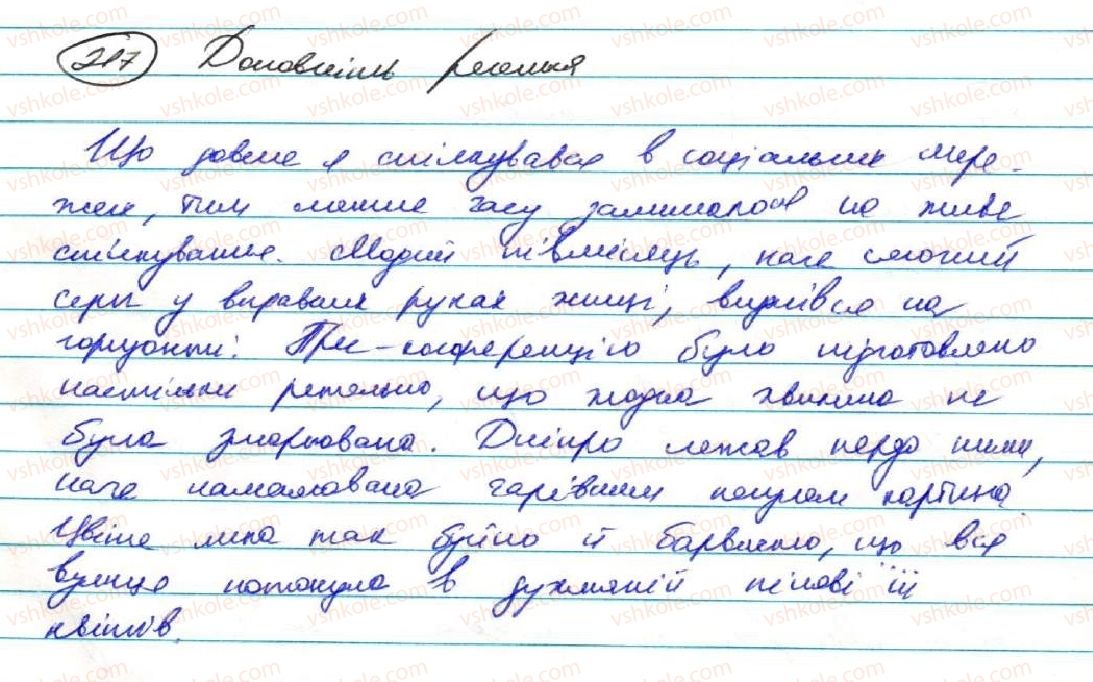 217 Доповніть речення
Що довше я спілкувався в соціальних мере-
жах, тим менше часу залишалося на живе
спілкування. Мадий півмісяць, наче смочий
серп у вправних руках жниці, виднівся на
горизонті. Прес-конференцію було підготовлено
настільки ретельно, що жодна хвилина не
була змарнована. Дніпро лежав пердо ними,
наче намальована чарівним пензлем картина.
Цвіте липа так буйно й барвисто, що вся
вулиця потонула в духмяній пілові її
квітів.